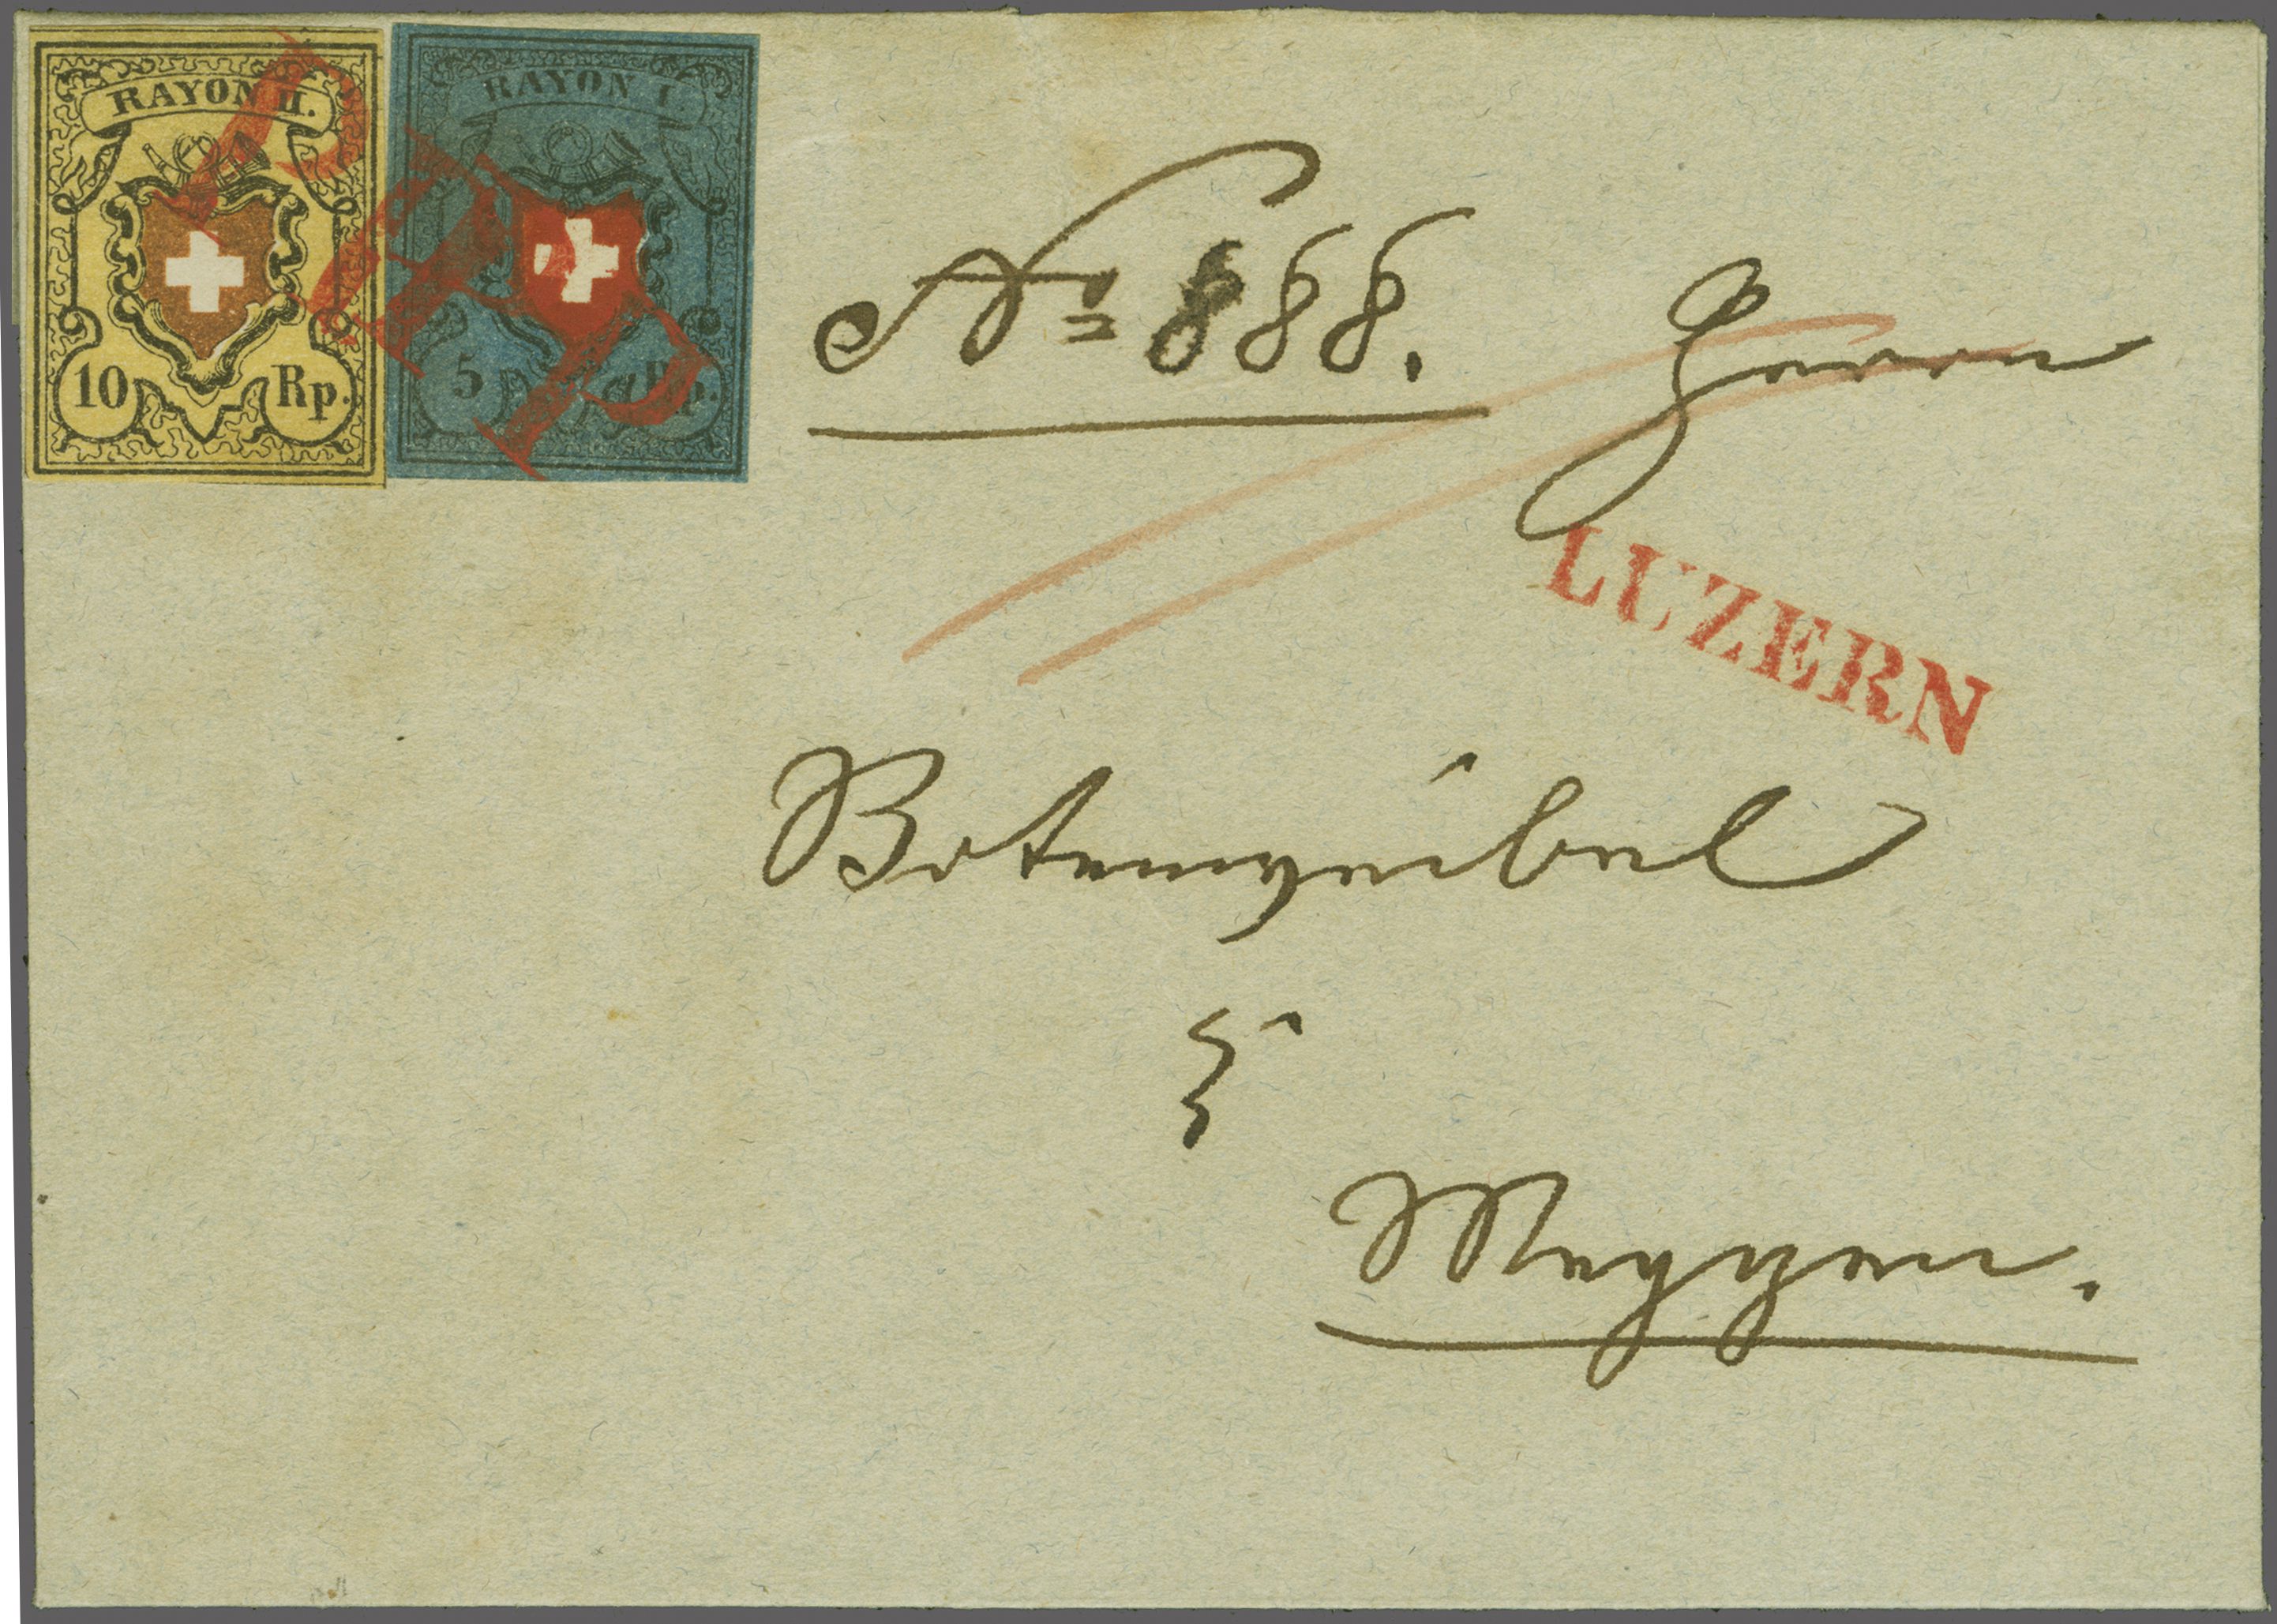 RAYON II.
10 Rp.
RAYON I
5 Rp.
P.P.
No 888. Herrn
LUZERN
in
Meggen.